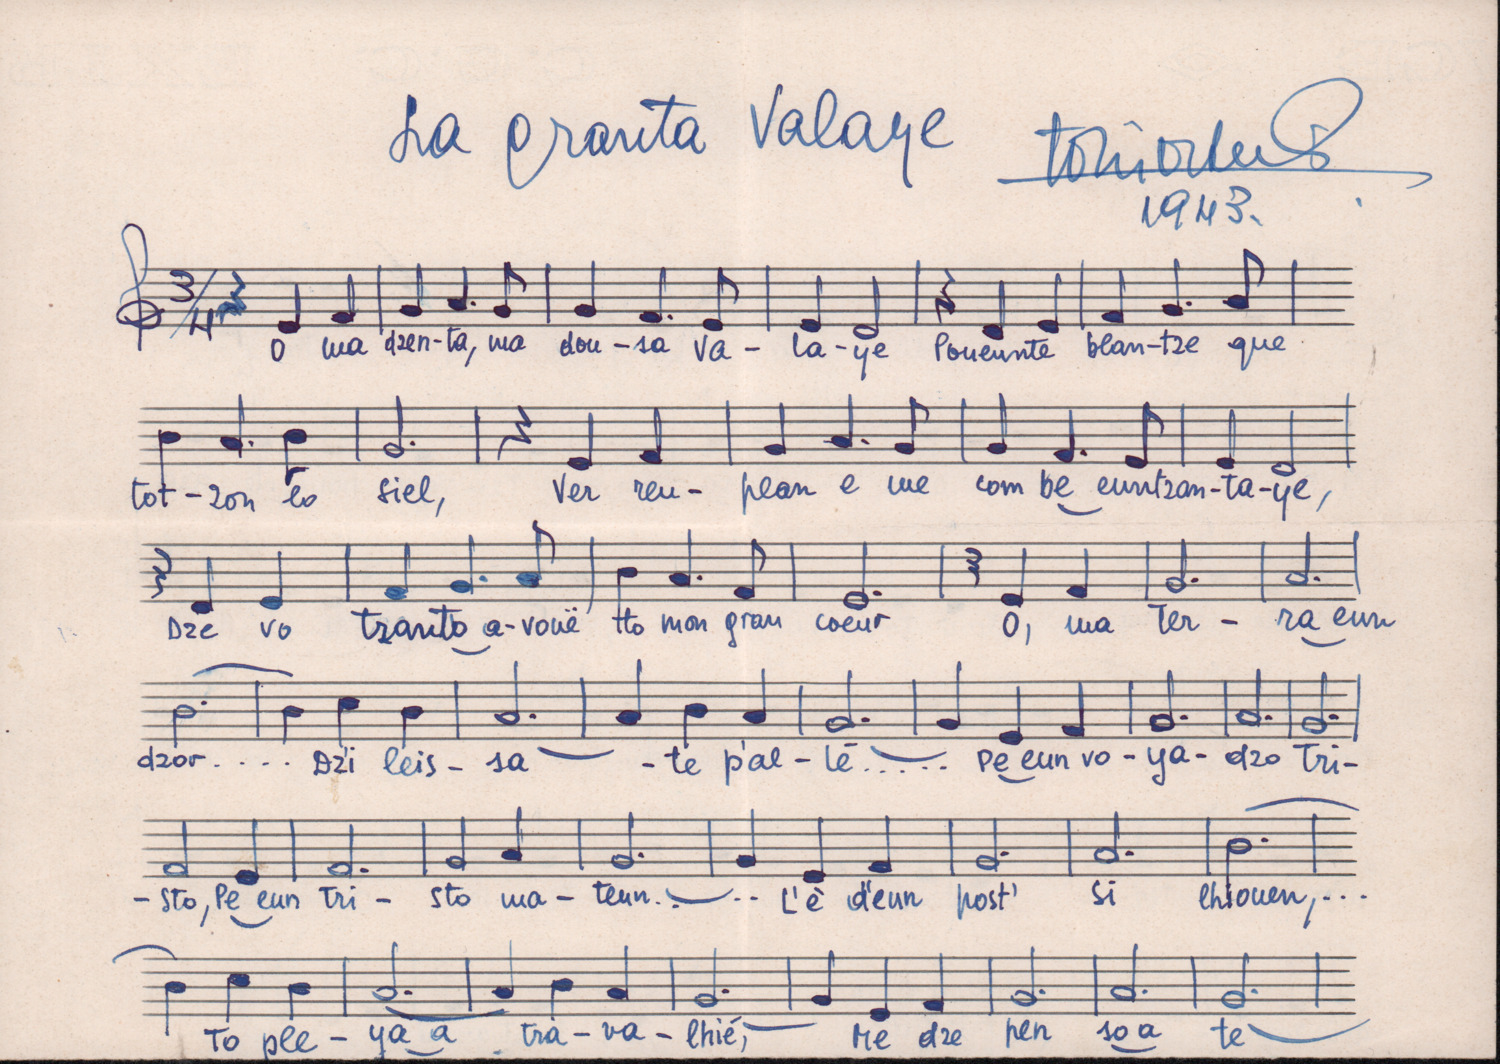 La granta Valaye
1943.
3/4
O ma dzen-ta, ma dou-sa va-la-ye Poueunte blan-tze que
tot-zon lo siel, Ver reu-plan e me com be euntzan-ta-ye,
Dze vo tzanto a-vouë tto mon gran coeur O, ma Ter-ra eun
dzor..... Dzi leis-sa-te p'al-lé..... Pe eun vo-ya-dzo Tri-
-sto, Pe eun Tri-sto ma-teun.... L'è d'eun post' si lhiouen,...
To plë-ya a tra-va-lhié, Me dze pen so a te